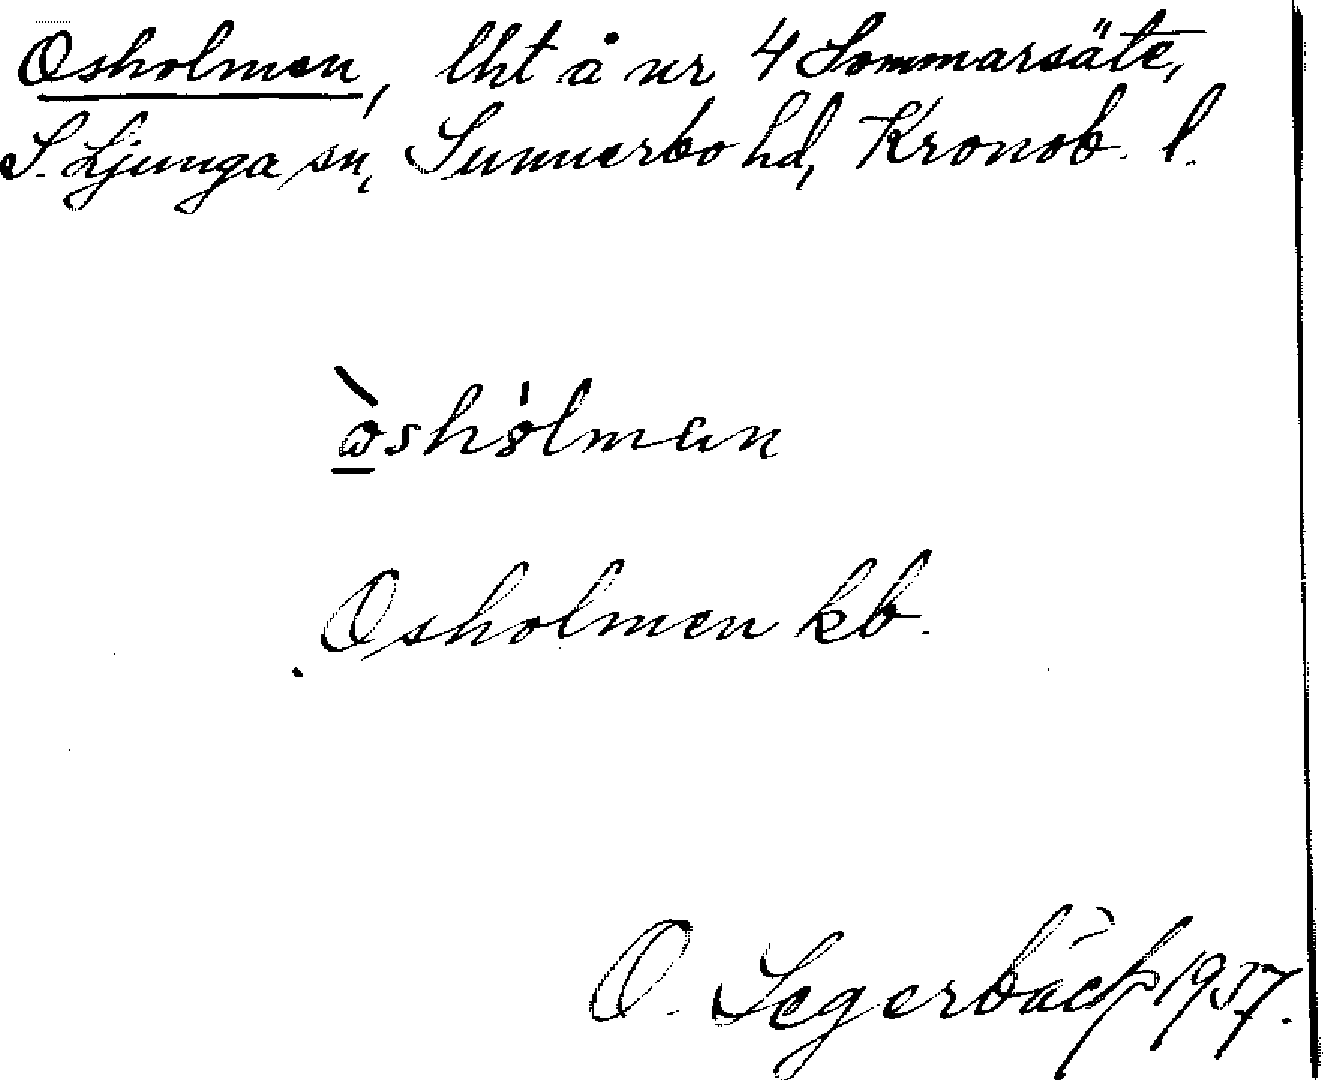 Osholmen, lht å nr 4 Sommarsäte,
S. Ljunga sn, Sunnerbo hd, Kronob. l.
òshòlman
Osholmen kb.
O. Segerbäck 1937.